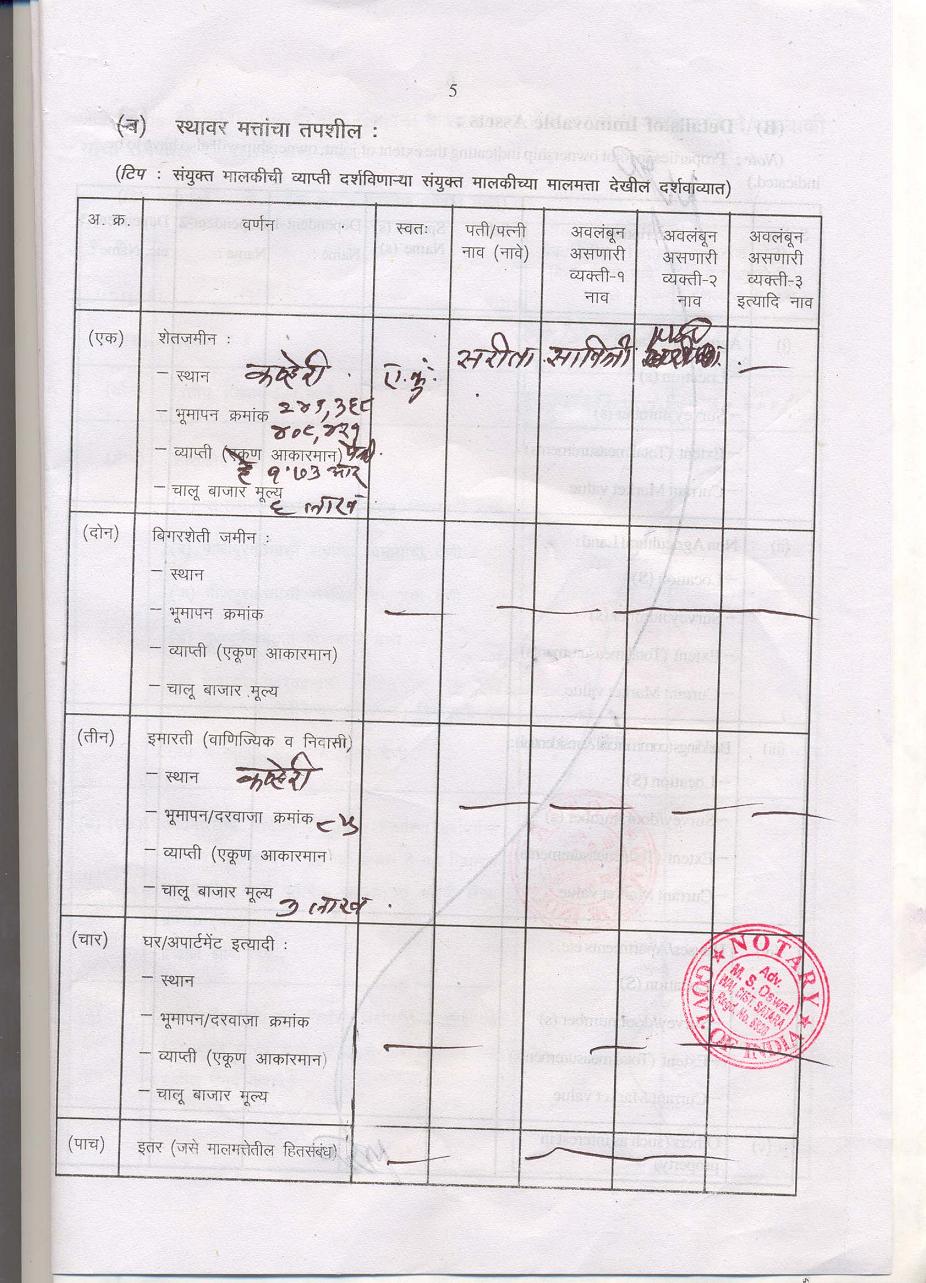 5
(ब) स्थावर मत्तांचा तपशील :
(टिप : संयुक्त मालकीची व्याप्ती दर्शविणाऱ्या संयुक्त मालकीच्या मालमत्ता देखील दर्शवाव्यात)
अ. क्र. वर्णन स्वतः पती/पत्नी नाव (नावे) अवलंबून असणारी व्यक्ती-१ नाव अवलंबून असणारी व्यक्ती-२ नाव अवलंबून असणारी व्यक्ती-३ इत्यादि नाव
(एक) शेतजमीन : सरीता सावित्री
– स्थान कव्हेरी ए.कु.
– भूमापन क्रमांक २४१, ३६८
४०८, ४२१
– व्याप्ती (एकूण आकारमान) पैकी
हे १.७३ आर
– चालू बाजार मूल्य
६ लाख
(दोन) बिगरशेती जमीन :
– स्थान
– भूमापन क्रमांक
– व्याप्ती (एकूण आकारमान)
– चालू बाजार मूल्य
(तीन) इमारती (वाणिज्यिक व निवासी)
– स्थान कव्हेरी
– भूमापन/दरवाजा क्रमांक ८५
– व्याप्ती (एकूण आकारमान
– चालू बाजार मूल्य ३ लाख
(चार) घर/अपार्टमेंट इत्यादी :
– स्थान
– भूमापन/दरवाजा क्रमांक
– व्याप्ती (एकूण आकारमान)
– चालू बाजार मूल्य
(पाच) इतर (जसे मालमत्तेतील हितसंबंध)
NOTARY
Adv.
M. S. Dewal
WAI, DIST. SATARA
Regd. No.
GOVT. OF INDIA